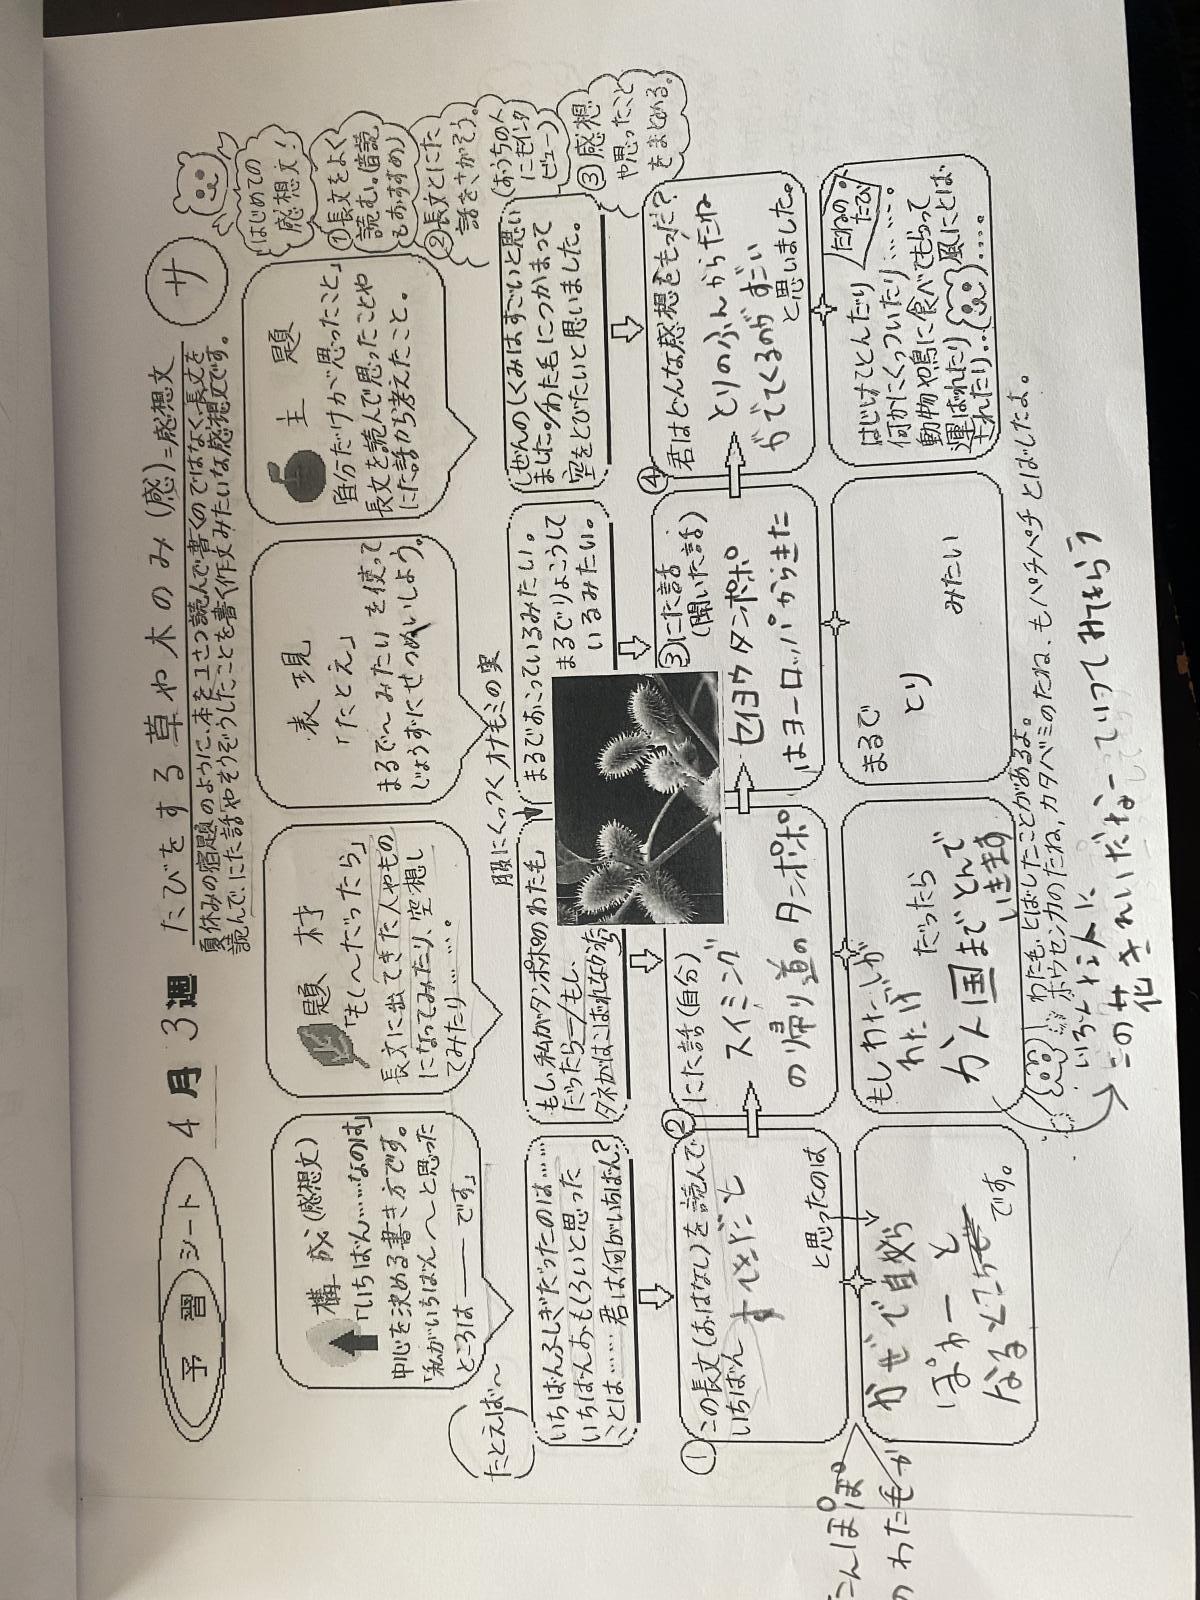 予習シート
4月3週
たびをする草や木のみ(感)=感想文
サ
夏休みの宿題のように、本を1さつ読んで書くのではなく、長文を
読んで、にた話やそうぞうしたことを書く作文みたいな感想文です。
はじめての
感想文!
①長文をよく
読む。(音読
もおすすめ)
②長文とにた
話をさがそう。
(おうちの人
にもインタ
ビュー)
③感想
や思ったこと
をまとめる。
構成(感想文)
「いちばん……なのは」
中心を決める書き方です。
「私がいちばん〜と思った
ところは――です」
題材
「もし〜だったら」
長文に出てきた人やもの
になってみたり、空想し
てみたり……。
表現
「たとえ」
まるで〜みたい を使って
じょうずにせつめいしよう。
主題
「自分だけが思ったこと」
長文を読んで思ったことや
にた話から考えたこと。
たとえば〜
いちばんふしぎだったのは……
いちばんおもしろいと思った
ことは…… 君は何がいちばん?
もし私がタンポポのわた毛
だったら―/もし、
タネがはこばれなかったら
服にくっつくオナモミの実
まるでおこっているみたい。
まるでりょこうして
いるみたい。
しぜんのしくみはすごいと思い
ました。/わた毛につかまって
空をとびたいと思いました。
①この長文(おはなし)を読んで
いちばん
すてきだと
と思ったのは
②にた話(自分)
スイミング
の帰り道のタンポポ
③にた話
(聞いた話)
セイヨウタンポポ
はヨーロッパからきた
④君はどんな感想をもった?
とりのふんからたね
がでてくるのがすごい
と思いました。
たんぽぽ
のわた毛が
かぜで自然
ぽわーと
なるところ
です。
もしわたしが
わたげ
だったら
かん国までとんで
いきます
まるで
とり
みたい
たねの
たび
はじけてとんだり
何かにくっついたり……
動物や鳥に食べてもらって
運ばれたり 風にとば
されたり……
わた毛、とばしたことがあるよ。
ホウセンカのたね、カタバミのたね、もパチパチとばしたよ。
いろんな人に
この花きれいだなーっていってみてもらう